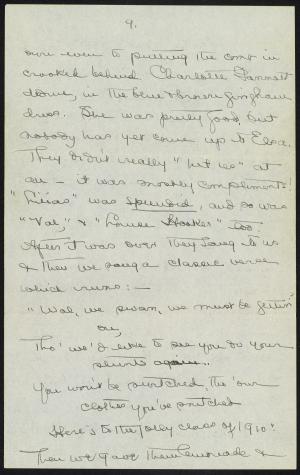 9.
own even to putting the comb in
crooked behind Charlotte Gannett
done, in the blue & brown gingham
dress. She was pretty good, but
nobody has yet come up to Elsa.
They didn't really "hit us" at
all – it was mostly compliments!
"Lilias" was splendid, and so was
"Val," & "Louise Hooker" too.
After it was over they sang to us
& then we sang a classic verse
which runs: –
"Wal, we swan, we must be gettin'
on,
Tho' we'd like to see you do your
stunts again..
You won't be switched, tho' our
clothes you've snitched
Here's to the jolly class of 1910!"
Then we gave them lemonade &